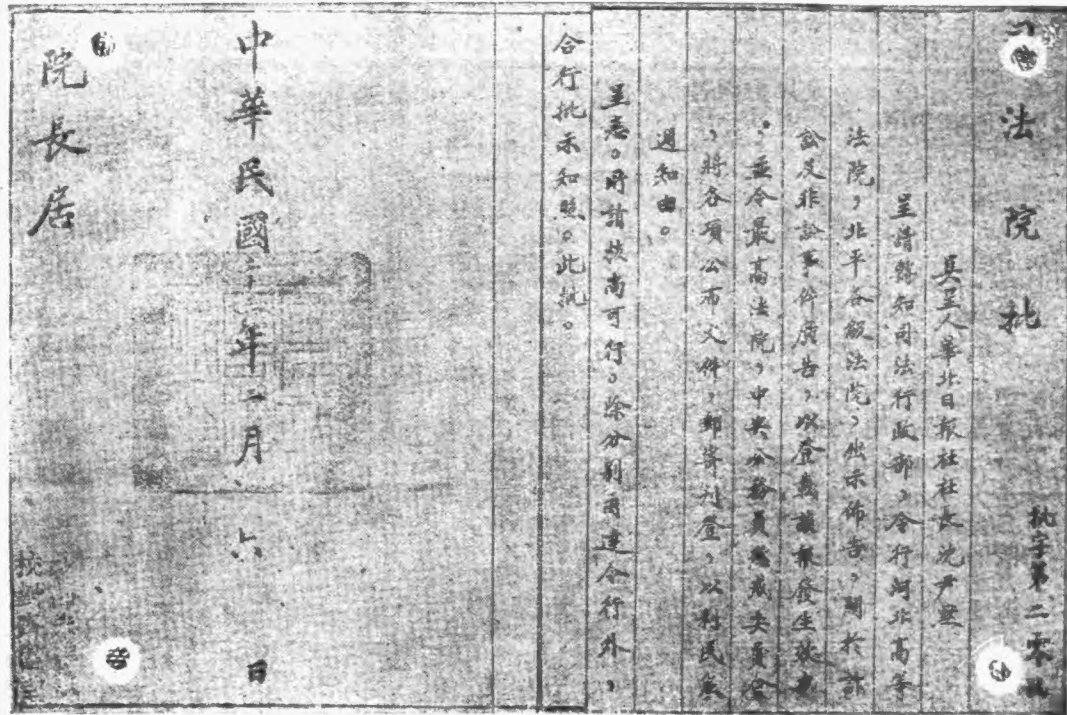 法院批
批字第二零號
具呈人華北日報社社長沈尹默
呈請轉知司法行政部，令行河北高等
法院，北平各級法院，出示佈告，關於訴
訟及非訟事件廣告，以登載該報發生效力
。並令最高法院，中央公務員懲戒委員會
，將各項公布文件，郵寄刊登，以利民衆
週知由。
呈悉。所請核尚可行。除分別函達令行外，
合行批示知照。此批。
中華民國二十二年二月六日
院長居
校對